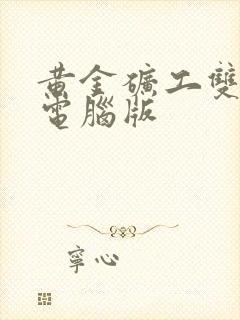 黄金礦工雙
電腦版
寧心